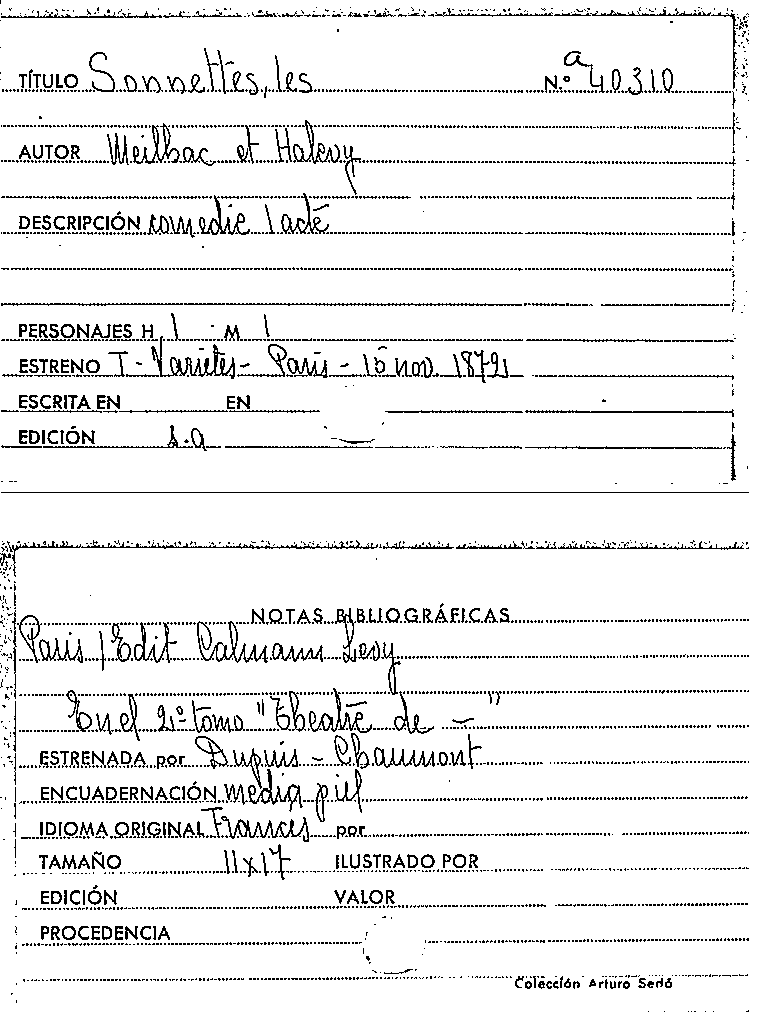 TÍTULO Sonnettes, les N.º a 40310
AUTOR Meilhac et Halevy
DESCRIPCIÓN comedie 1 acte
PERSONAJES H 1 M 1
ESTRENO T - Varietes - Paris - 15 nov. 1872
ESCRITA EN EN
EDICIÓN s.a
NOTAS BIBLIOGRÁFICAS
Paris / Edit Calmann Levy
En el 2º tomo "Theatre de — "
ESTRENADA por Dupuis - Chaumont
ENCUADERNACIÓN media piel
IDIOMA ORIGINAL Frances por
TAMAÑO 11x17 ILUSTRADO POR
EDICIÓN VALOR
PROCEDENCIA
Colección Arturo Sedó